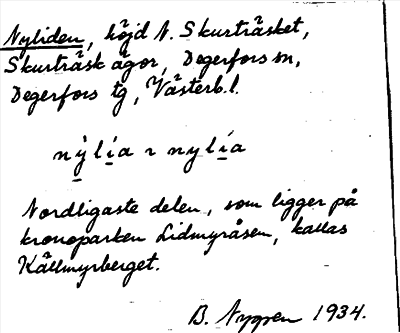 Nyliden, höjd N. Skurträsket,
Skurträsk ägor, Degerfors sn,
Degerfors tg, Västerb. l.
nỳlía ɿ nylía
Nordligaste delen, som ligger på
kronoparken Lidmyråsen, kallas
Källmyrberget.
B. Nygren 1934.